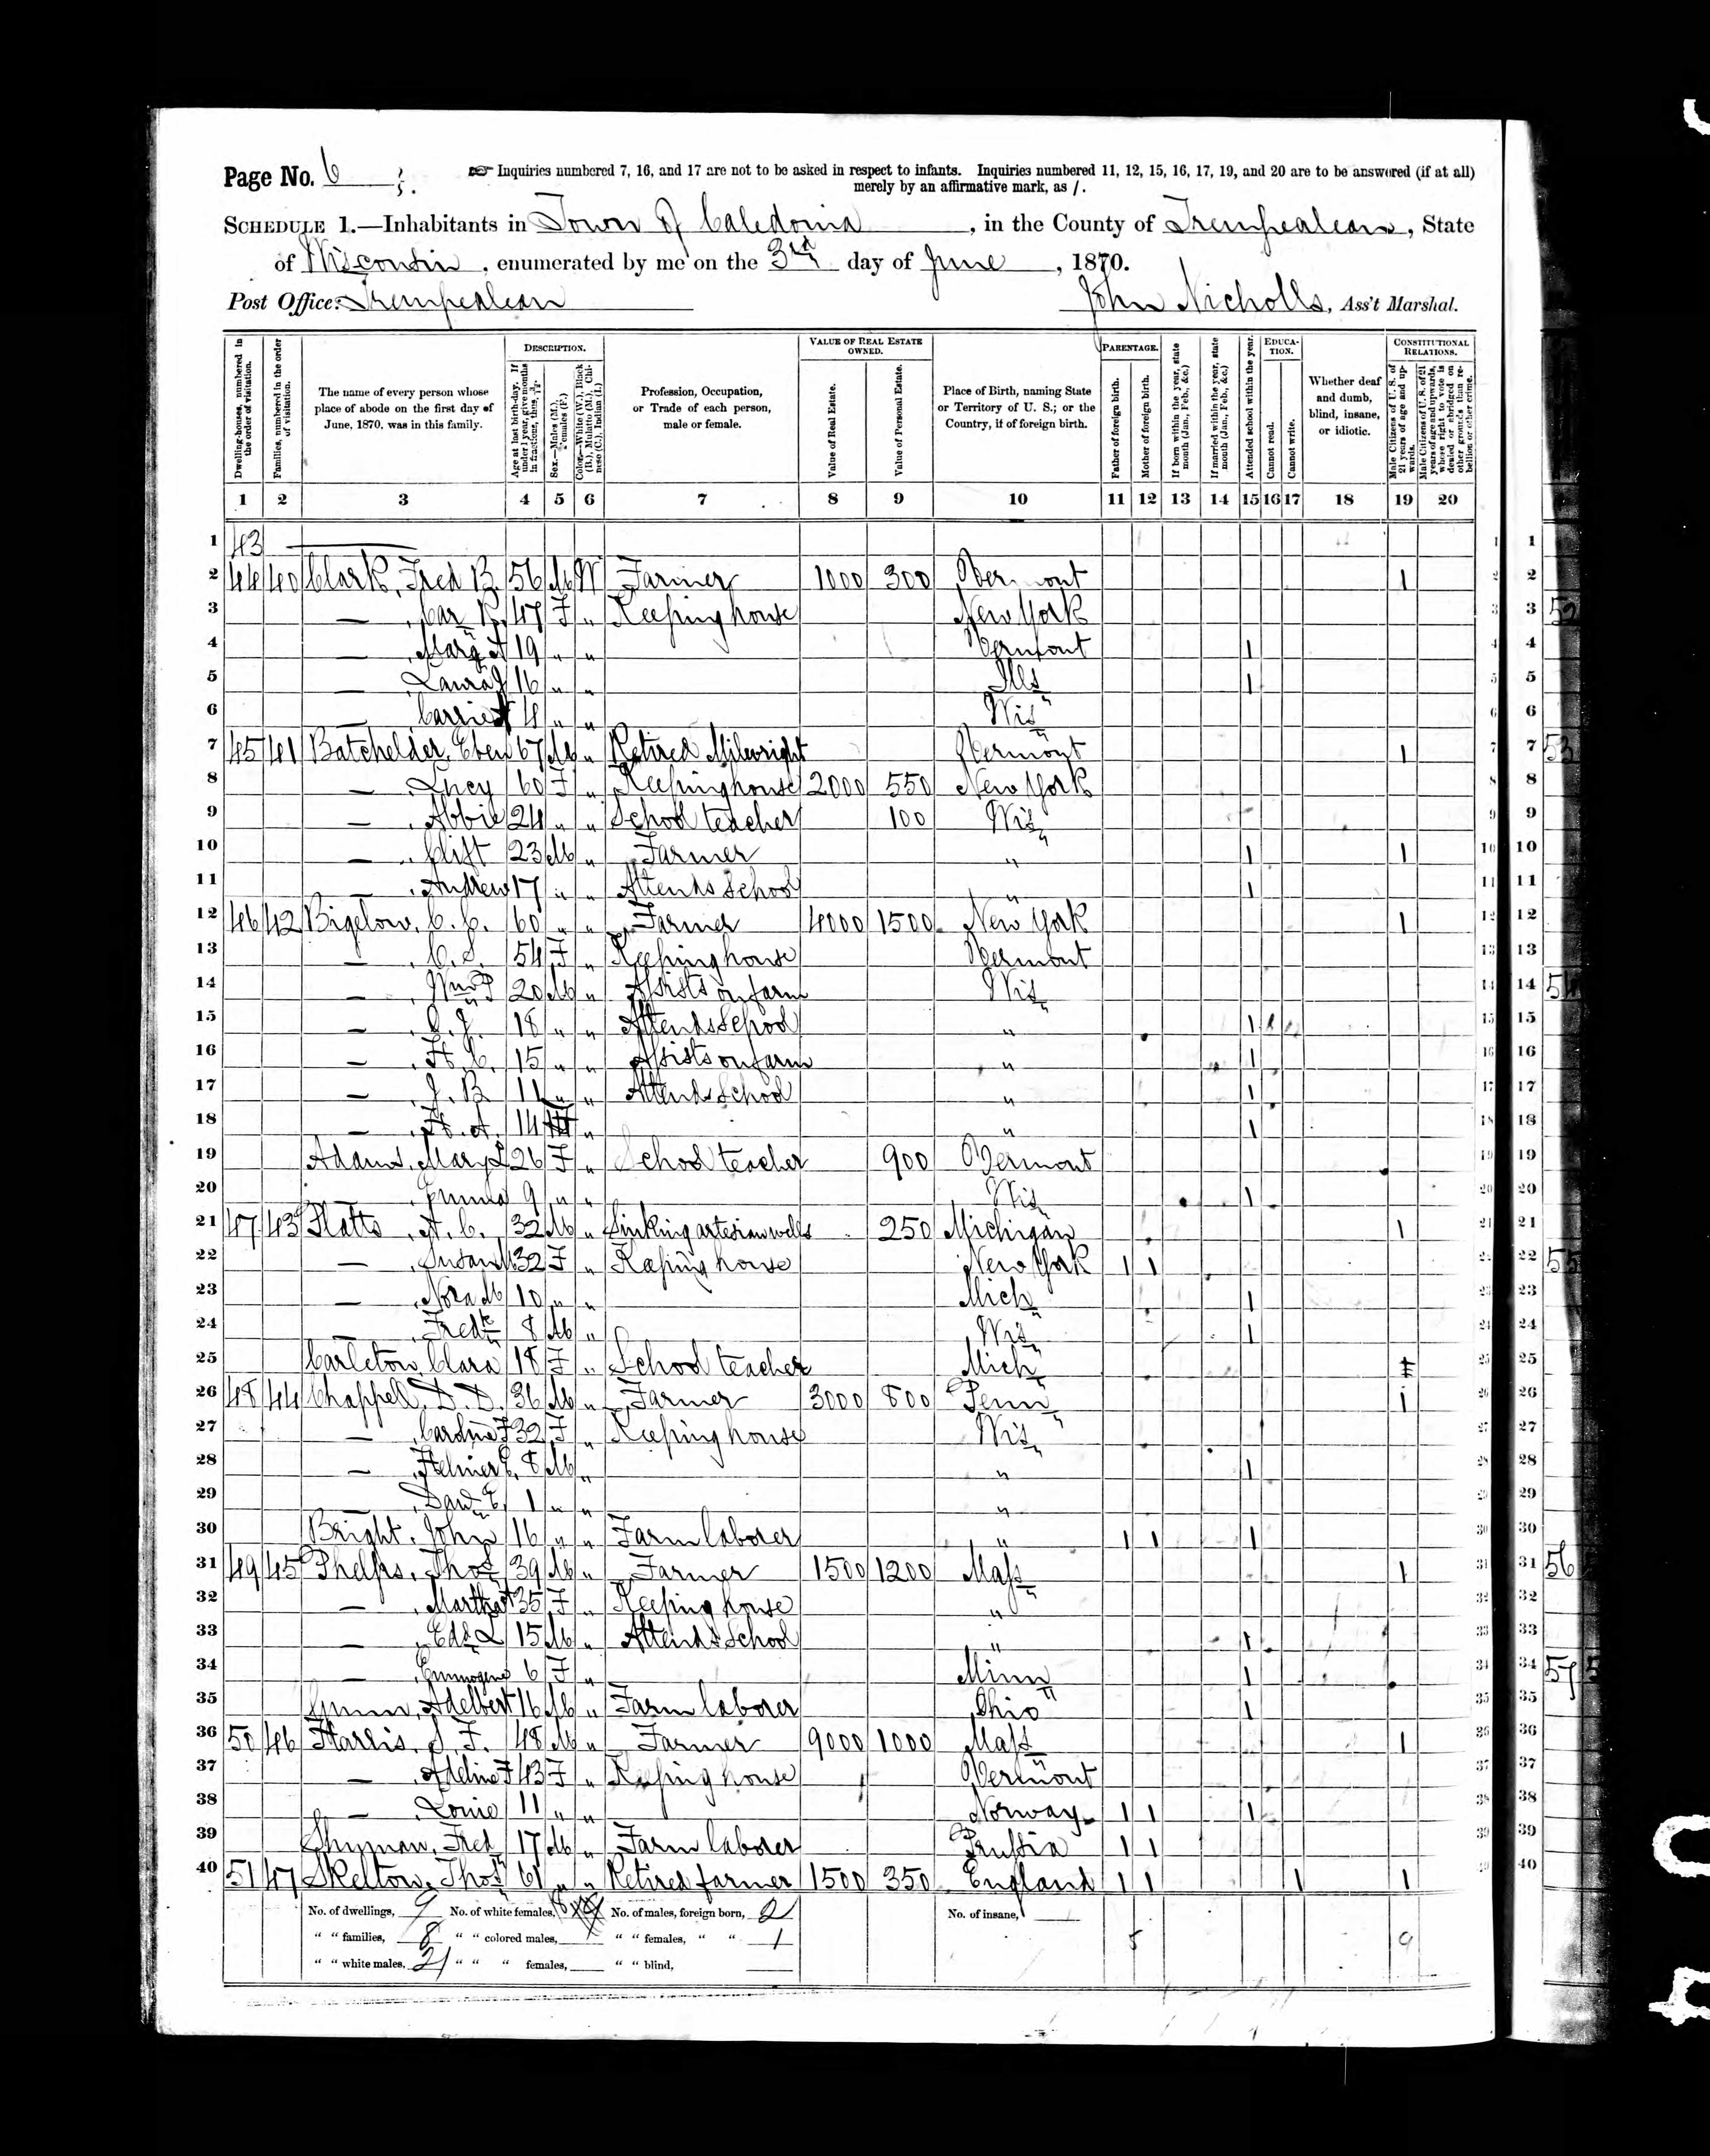 Page No. 6
☞ Inquiries numbered 7, 16, and 17 are not to be asked in respect to infants. Inquiries numbered 11, 12, 15, 16, 17, 19, and 20 are to be answered (if at all)
merely by an affirmative mark, as /.
SCHEDULE 1.—Inhabitants in Town of Caledonia, in the County of Trempealeau, State
of Wisconsin, enumerated by me on the 3rd day of June, 1870.
Post Office: Trempealeau John Nicholls, Ass't Marshal.
Dwelling-houses, numbered in the order of visitation.
Families, numbered in the order of visitation.
The name of every person whose place of abode on the first day of June, 1870, was in this family.
DESCRIPTION.
Age at last birth-day. If under 1 year, give months in fractions, thus, 3/12.
Sex.—Males (M.), Females (F.)
Color.—White (W.), Black (B.), Mulatto (M.), Chinese (C.), Indian (I.)
Profession, Occupation, or Trade of each person, male or female.
VALUE OF REAL ESTATE OWNED.
Value of Real Estate.
Value of Personal Estate.
Place of Birth, naming State or Territory of U. S.; or the Country, if of foreign birth.
PARENTAGE.
Father of foreign birth.
Mother of foreign birth.
If born within the year, state month (Jan., Feb., &c.)
If married within the year, state month (Jan., Feb., &c.)
Attended school within the year.
EDUCATION.
Cannot read.
Cannot write.
Whether deaf and dumb, blind, insane, or idiotic.
CONSTITUTIONAL RELATIONS.
Male Citizens of U. S. of 21 years of age and upwards.
Male Citizens of U. S. of 21 years of age and upwards, whose right to vote is denied or abridged on other grounds than rebellion or other crime.
1 2 3 4 5 6 7 8 9 10 11 12 13 14 15 16 17 18 19 20
1 43
2 44 40 Clark, Fred B. 56 M W Farmer 1000 300 Vermont 1
3 — 47 F " Keeping house New York
4 — 19 " " Vermont 1
5 — Laura J 16 " " Ills 1
6 — Carrie 4 " " Wis
7 45 41 Batchelder, Eben 67 M " Retired Milwright Vermont 1
8 — Lucy 60 F " Keeping house 2000 550 New York
9 — Abbie 24 " " School teacher 100 Wis
10 — Clift 23 M " Farmer " 1 1
11 — Andrew 17 " " Attends School " 1
12 46 42 Bigelow, C. C. 60 " " Farmer 4000 1500 New York 1
13 — C. S. 54 F " Keeping house Vermont
14 — Wm P 20 M " Assists on farm Wis
15 — 18 " " Attends School " 1
16 — H. C. 15 " " Assists on farm " 1
17 — J. B. 11 " " Attends School " 1
18 — H. A. 14 " " 1
19 Adams, Mary L 26 F " School teacher 900 Vermont
20 — Emma 9 " " Wis 1
21 47 43 Platts, A. C. 32 M " Sinking artesian wells 250 Michigan 1
22 — Susan M 32 F " Keeping house New York 1 1
23 — Nora M 10 " " Mich 1
24 — Fredk 8 M " Wis 1
25 Carleton, Clara 18 F " School teacher Mich
26 48 44 Chappell, D. D. 36 M " Farmer 3000 800 Penn 1
27 — Caroline F 32 F " Keeping house Wis
28 — 8 M " " 1
29 — Davd E, 1 " " "
30 Bright, John 16 " " Farm laborer " 1 1 1
31 49 45 Phelps, Thos 39 M " Farmer 1500 1200 Mass 1
32 — Martha A 35 F " Keeping house "
33 — Edd L 15 M " Attends School " 1
34 — Emmogene 6 F " Minn 1
35 Adelbert 16 M " Farm laborer Ohio 1
36 50 46 Harris, S. F. 48 M " Farmer 9000 1000 Mass 1
37 — Adeline F 43 F " Keeping house Vermont
38 — Louie 11 " " Norway 1 1 1
39 Shyman, Fred 17 M " Farm laborer Prussia 1 1
40 51 47 Skelton, Thos 61 " " Retired farmer 1500 350 England 1 1 1 1
No. of dwellings, 9 No. of white females, No. of males, foreign born, 2 No. of insane,
" " families, 8 " " colored males, " " females, " " 1
" " white males, 21 " " " females, " " blind,
5 9